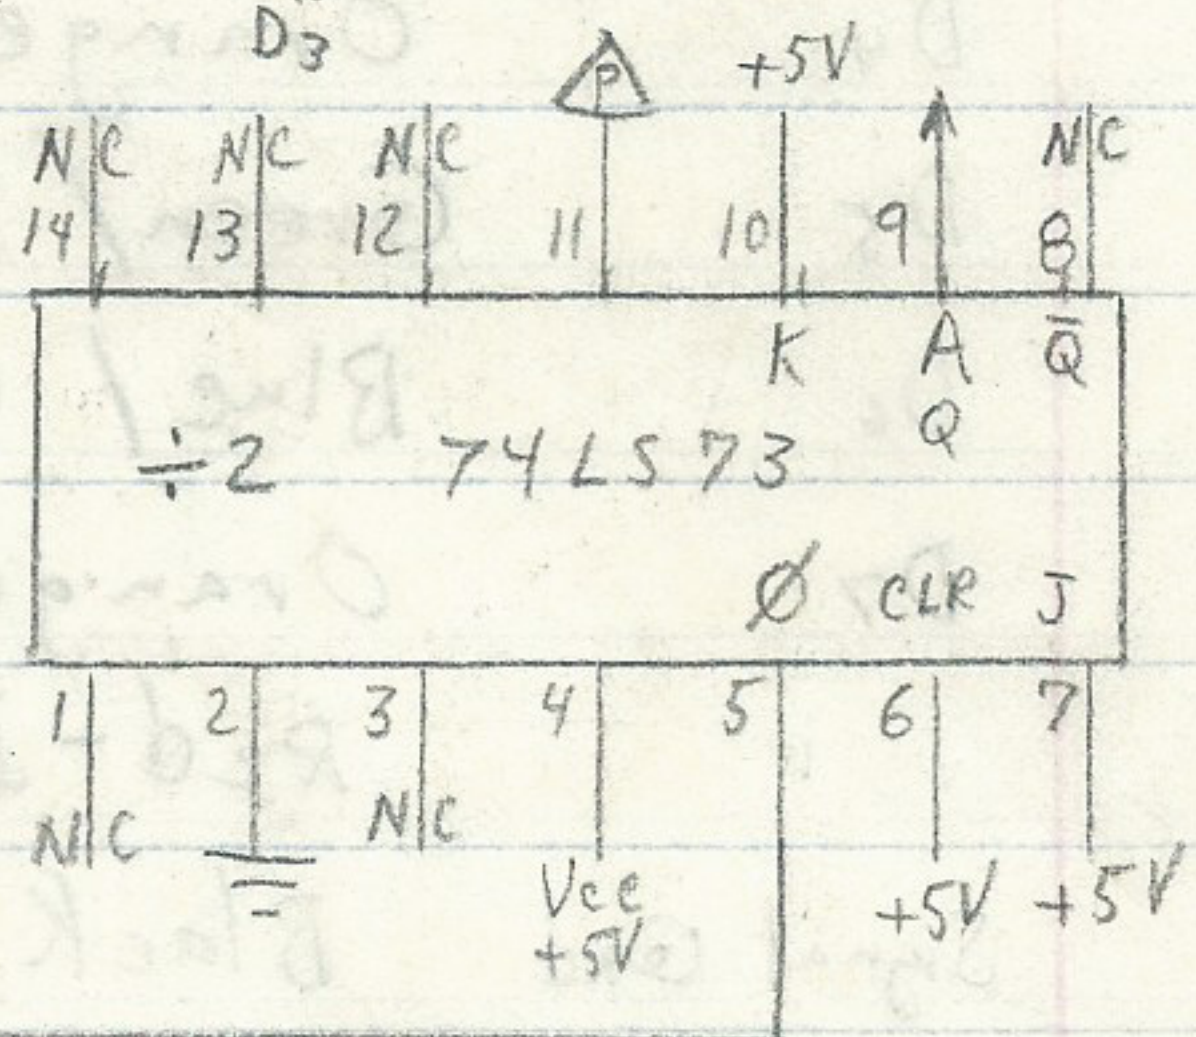 D3
P +5V
NC NC NC NC
14 13 12 11 10 9 8
K A Q̅
Q
÷2 74LS73
Ø CLR J
1 2 3 4 5 6 7
NC NC
Vcc +5V +5V
+5V